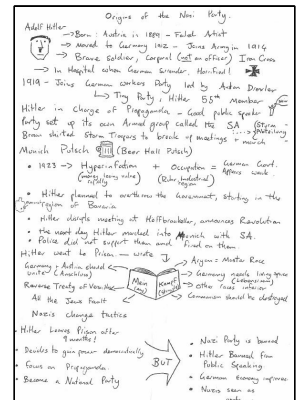 Origins of the Nazi Party.
Adolf Hitler
→ Born: Austria in 1889 - Failed Artist
→ Moved to Germany 1912 - Joins Army in 1914
→ Brave soldier, Corporal (not an officer) Iron Cross
→ In Hospital when German Surrender. Horrified!
1919 - Joins German Workers Party led by Anton Drexler
→ Tiny Party, Hitler 55th Member
Hitler in Charge of Propaganda - Good public speaker
Party set up its own Armed group called the SA (Sturm -
Brown shirted Storm Troopers to break of meetings + march
Munich Putsch (Beer Hall Putsch)
• 1923 → Hyperinflation + Occupation = German Govt.
(money losing value rapidly) (Ruhr Industrial region) Appears weak.
• Hitler planned to overthrow the Government, starting in the
region of Bavaria
• Hitler disrupts meeting at announces Revolution
• the next day Hitler marched into Munich with SA.
• Police did not support them and fired on them.
Hitler went to Prison - wrote
Aryan = Master Race
Germany + Austria should unite (Anschluss)
Germany needs living space (Lebensraum)
Reverse Treaty of Versailles
Mein Kampf
other races inferior
All the Jews fault
Communism should be destroyed
Nazis change tactics
• Hitler Leaves Prison after
9 months!
• Decides to gain power democratically
• Focus on Propaganda
• Become a National Party
BUT
• Nazi Party is banned
• Hitler Banned from
Public Speaking
• German Economy improves
• Nazis seen as